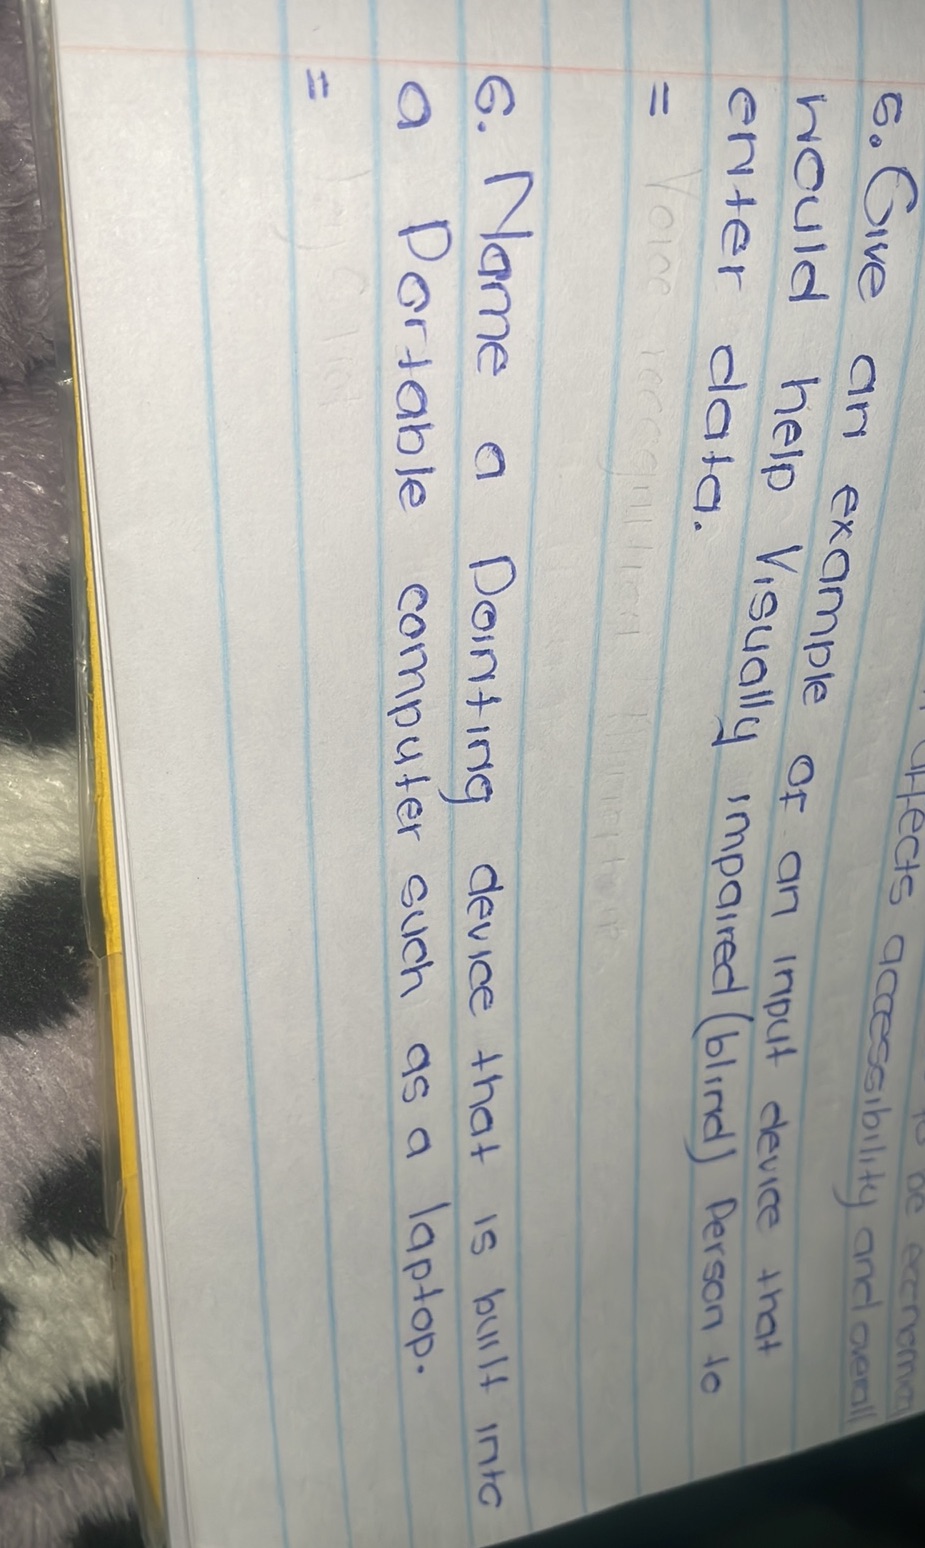 affects accessibility and overall
5. Give an example of an input device that
would help visually impaired (blind) person to
enter data.
=
6. Name a pointing device that is built into
a portable computer such as a laptop.
=